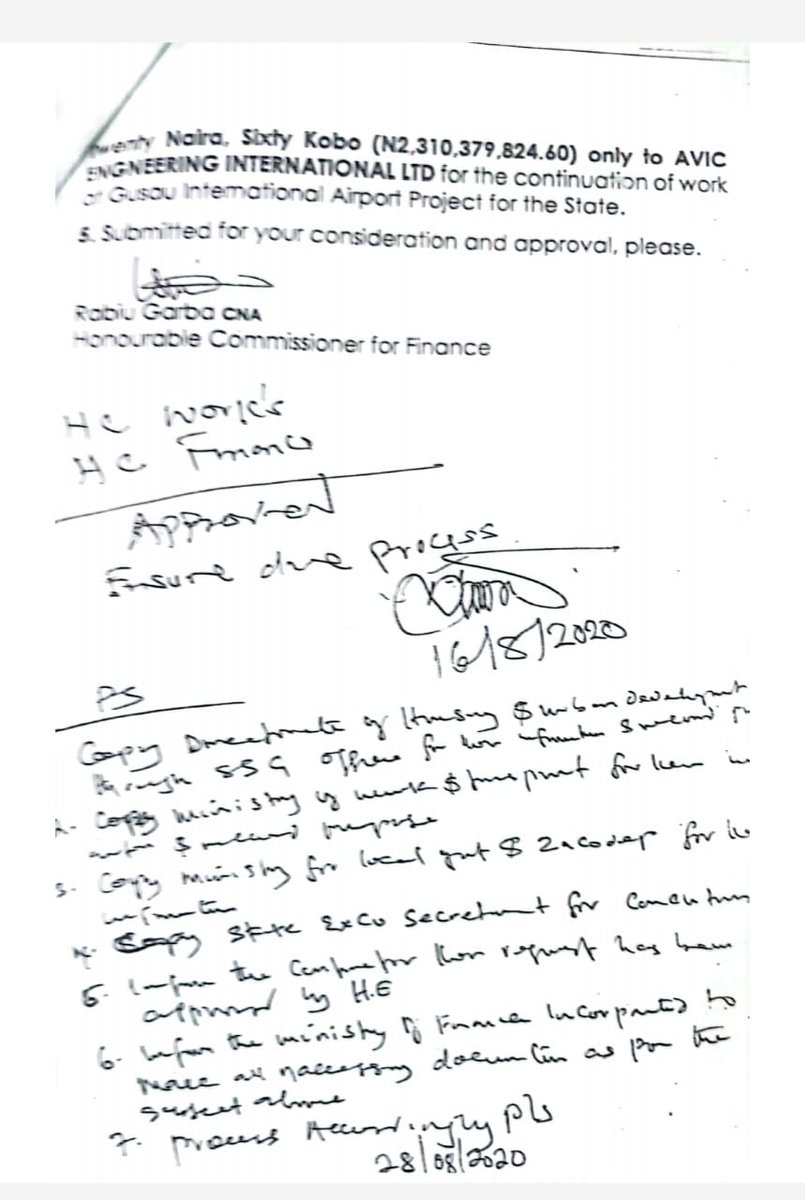 twenty Naira, Sixty Kobo (N2,310,379,824.60) only to AVIC
ENGNEERING INTERNATIONAL LTD for the continuation of work
at Gusau International Airport Project for the State.
5. Submitted for your consideration and approval, please.
Rabiu Garba CNA
Honourable Commissioner for Finance
HC Work's
HC Finance
Approved
Ensure due process.
16/8/2020
PS
Copy Directorate of Housing $ urban Development
through SSG office for
2. Copy ministry of work $ transport for
$ record purpose
3. Copy ministry for local govt $ Zacodep for
information
4. Copy State ExCo Secretariat for
5. Inform the Contractor their request has been
approved by H.E
6. Inform the ministry of Finance Incorporated to
make all necessary as per the
subject above
7. process Accordingly pls
28/08/2020